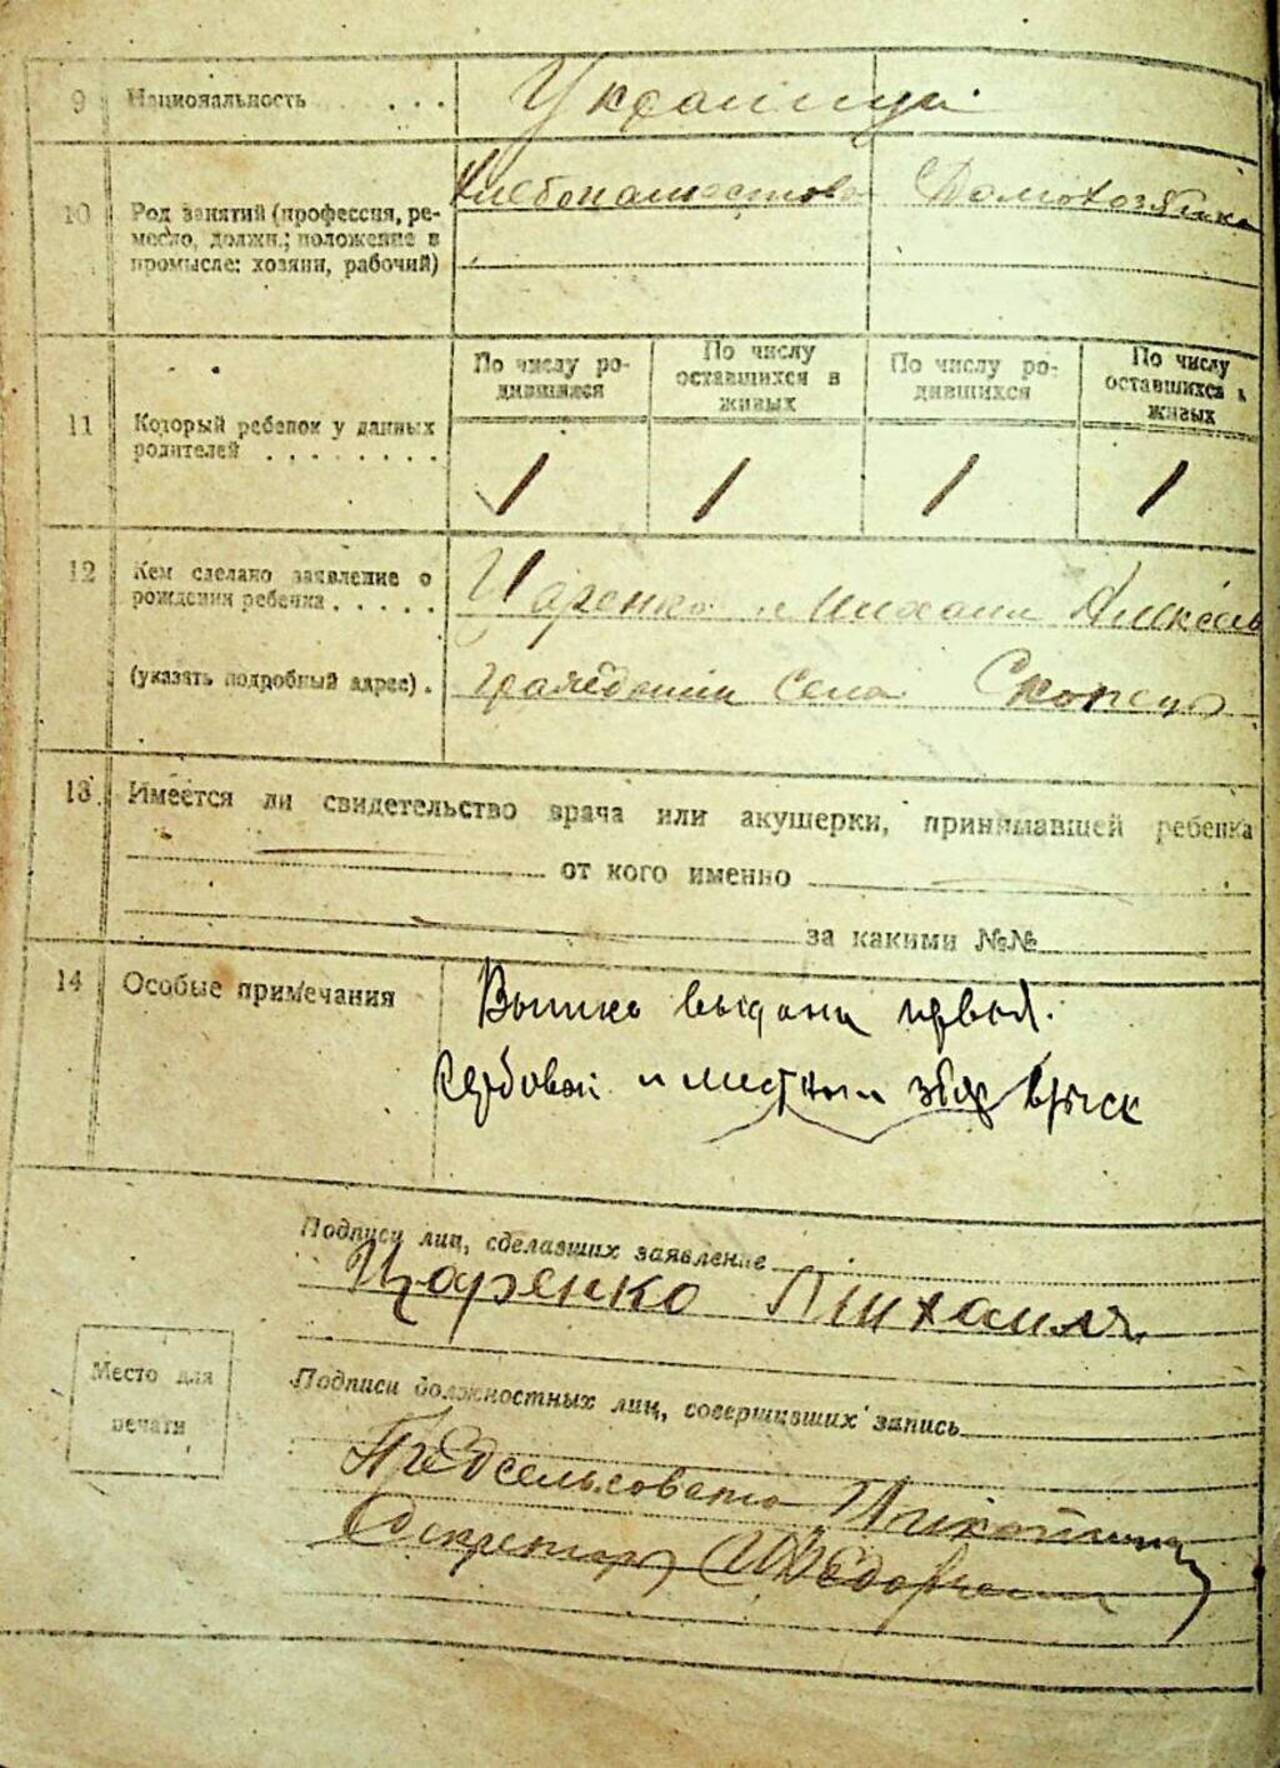 9 Национальность . . . Украинци
10 Род занятий (профессия, ре-
месло, должн.; положение в
промысле: хозяин, рабочий)
Хлебопашество Домохозяйка
По числу ро-
дившихся
По числу
оставшихся в
живых
По числу ро-
дившихся
По числу
оставшихся в
живых
11 Который ребенок у данных
родителей . . . . . . . .
1 1 1 1
12 Кем сделано заявление о
рождении ребенка . . . . .
Царенко Михаил
(указать подробный адрес) .
гражданин села
13. Имеется ли свидетельство врача или акушерки, принимавшей ребенка
от кого именно
за какими №№
14 Особые примечания
выдана
и
Подписи лиц, сделавших заявление
Царенко Михаил
Место для
печати
Подписи должностных лиц, совершивших запись
Предсельсовета
Секретарь